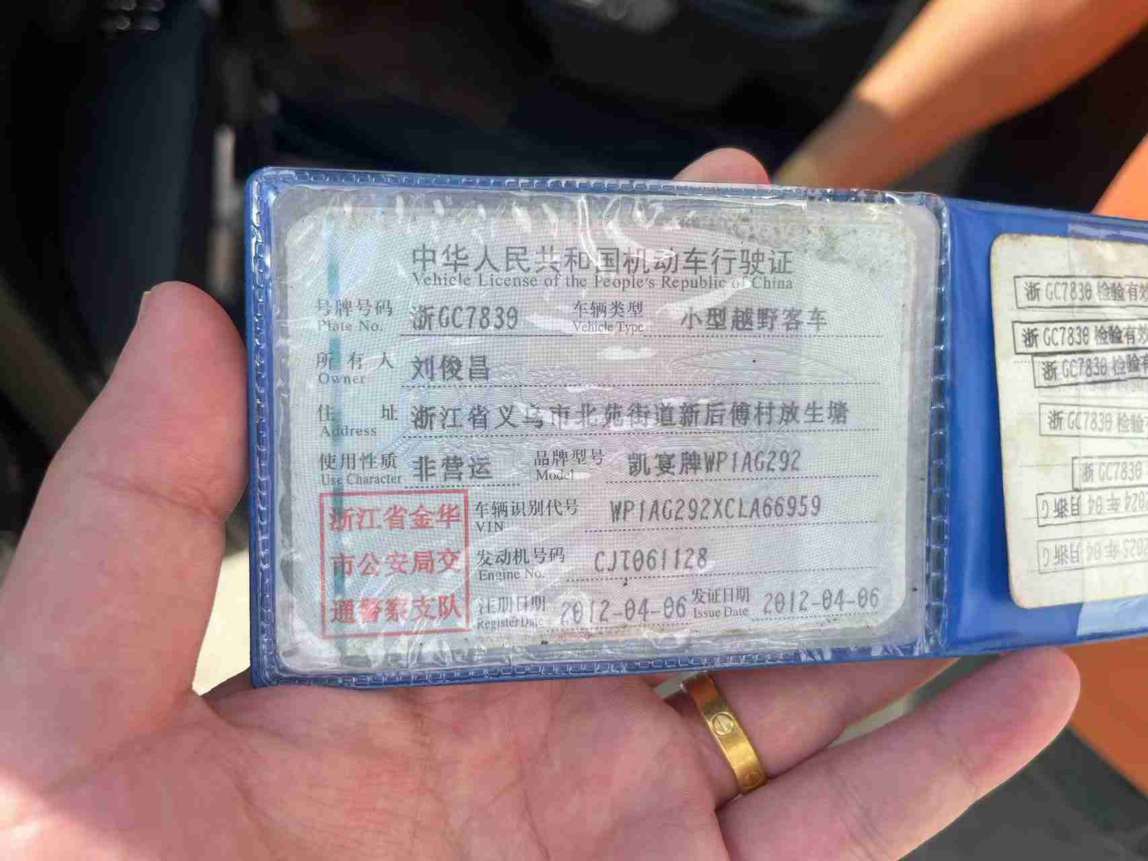 中华人民共和国机动车行驶证
Vehicle License of the People's Republic of China
号牌号码 浙GC7839 车辆类型 小型越野客车
Plate No. Vehicle Type
所有人 刘俊昌
Owner
住址 浙江省义乌市北苑街道新后傅村放生塘
Address
使用性质 非营运 品牌型号 凯宴牌WP1AG292
Use Character Model
浙江省金华
市公安局交
通警察支队
车辆识别代号 WP1AG292XCLA66959
VIN
发动机号码 CJT061128
Engine No.
注册日期 2012-04-06 发证日期 2012-04-06
Register Date Issue Date
浙GC7839 检验有效
浙GC7839 检验有效
浙GC7839 检验有
浙GC7839 检验
浙GC7839